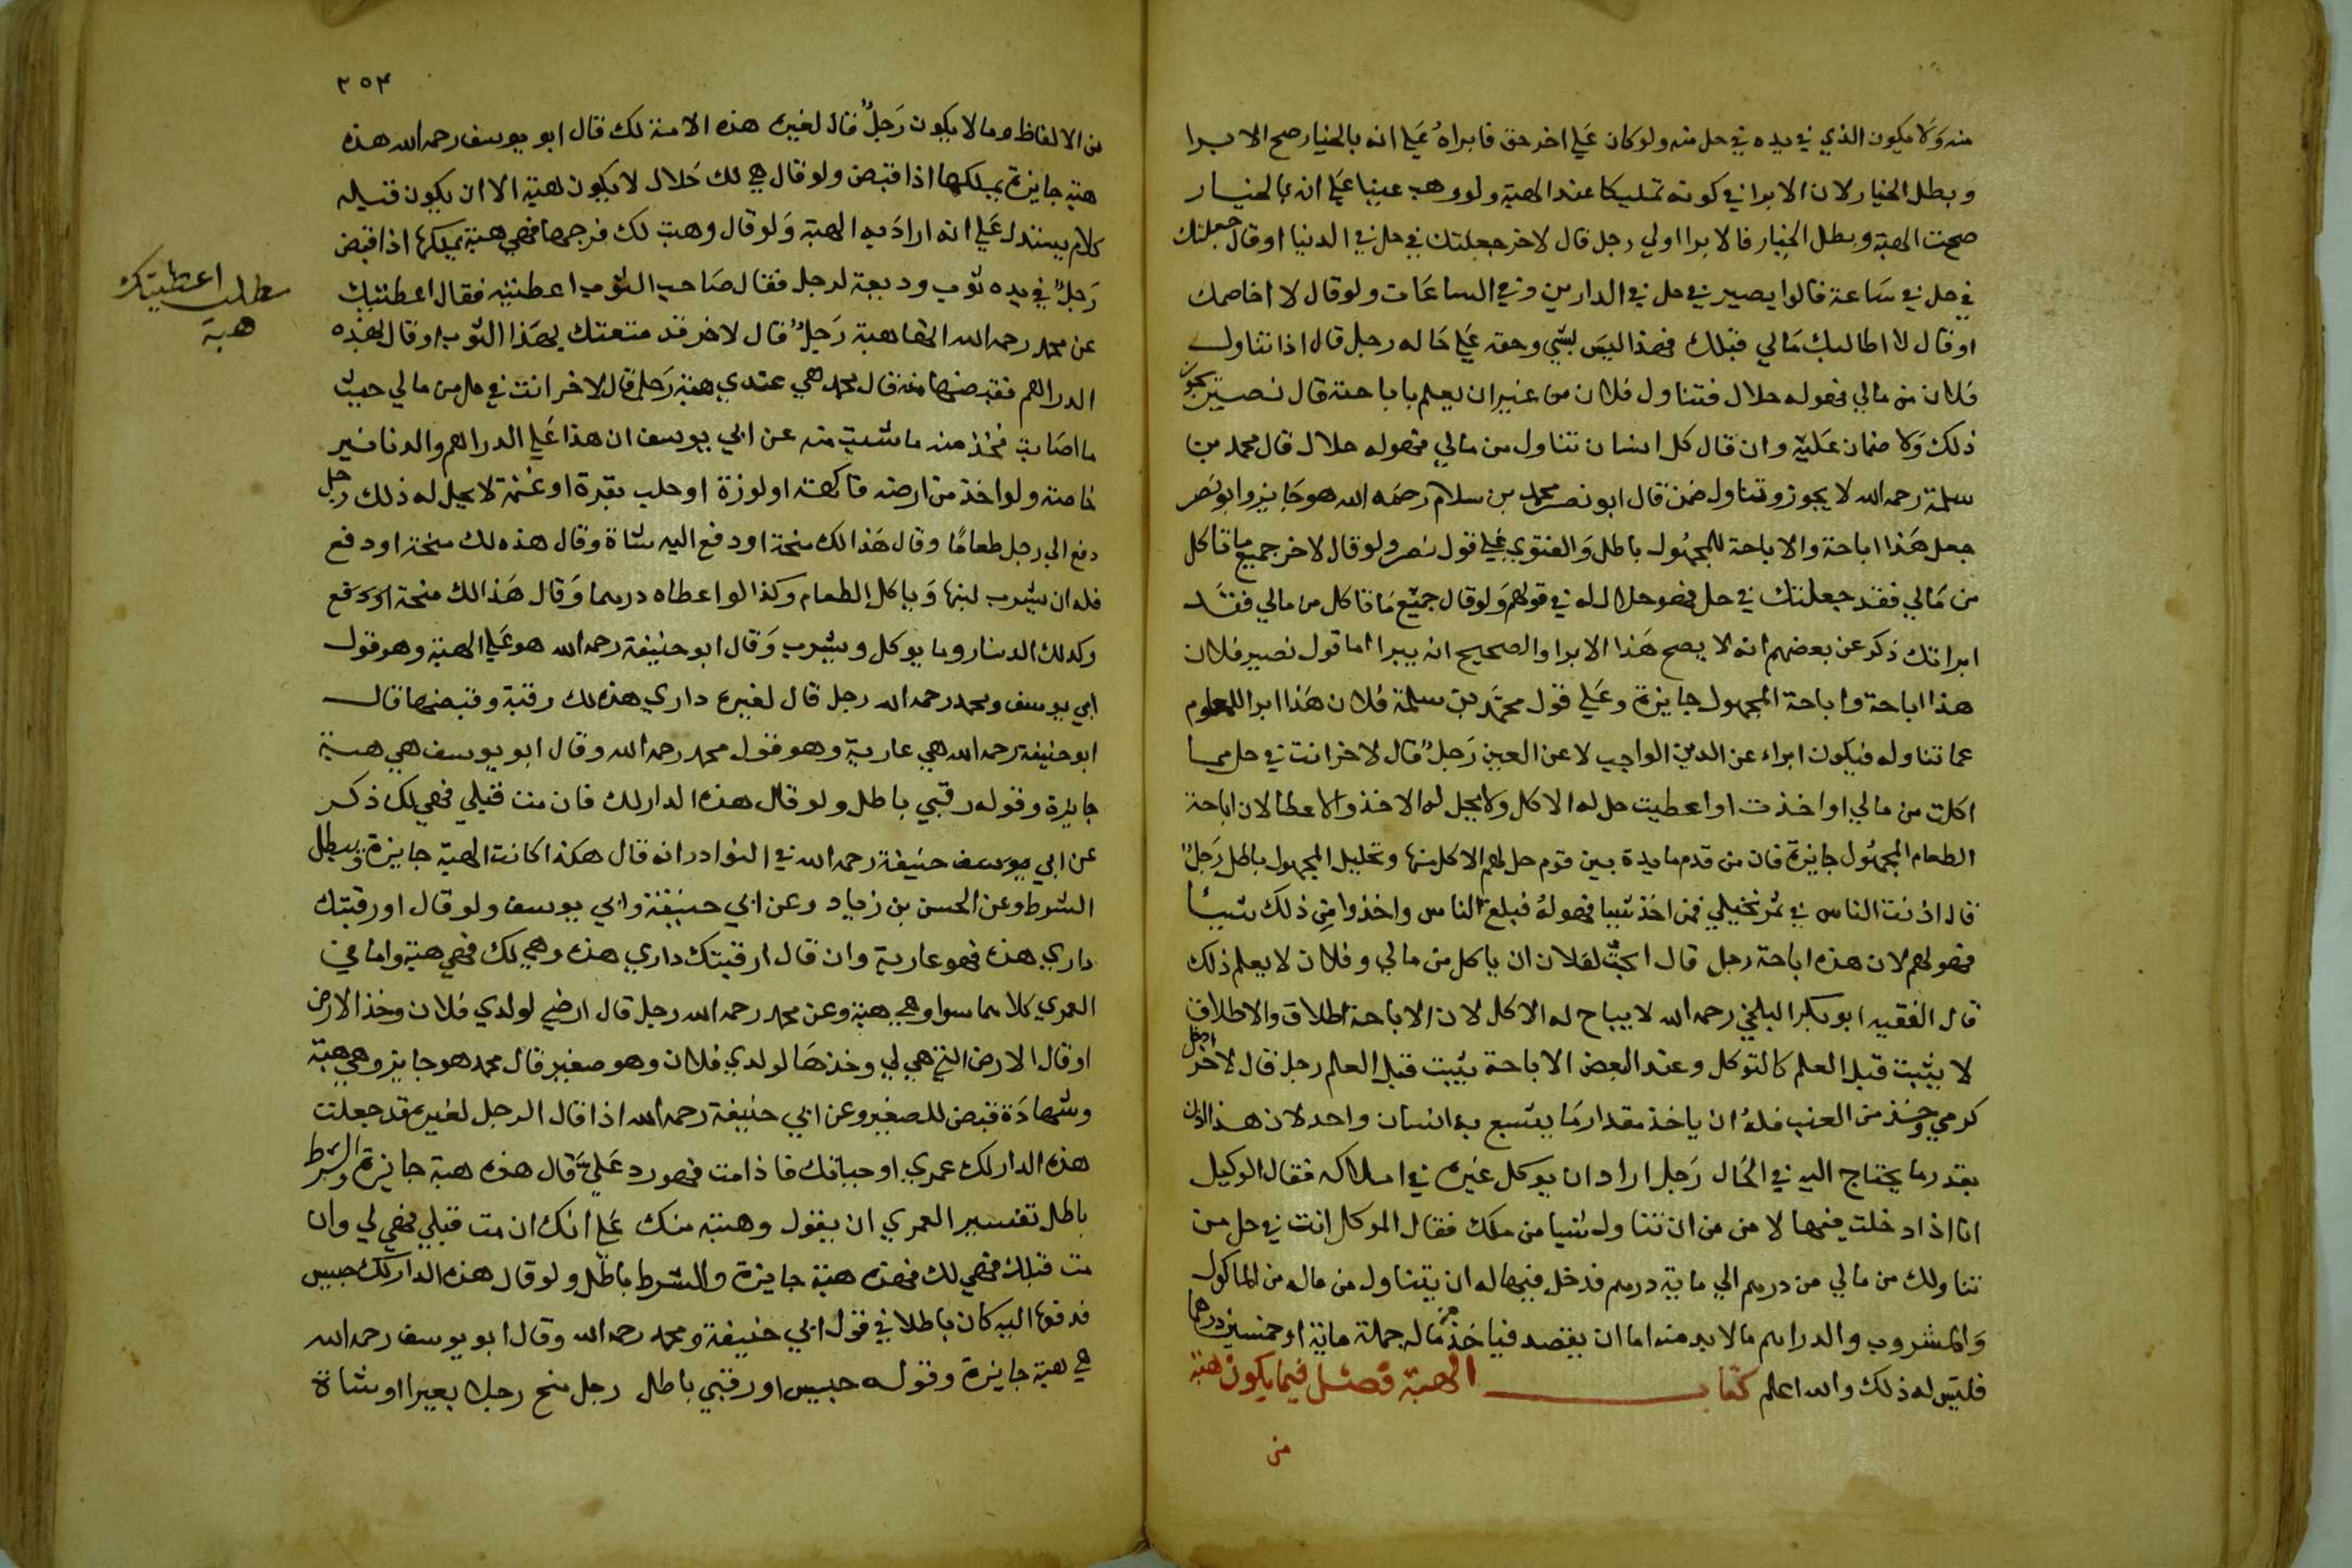 منه ولا يكون الذي في يده في حل منه ولو كان علي اخر حق فابراه علي انه بالخيار صح الابرا
وبطل الخيار لان الابرا في كونه تمليكا عند الهبة ولو وهب عينا علي انه بالخيار
صحت الهبة وبطل الخيار فالابرا اولي رجل قال لاخر جعلتك في حل في الدنيا او قال جعلتك
في حل في ساعة قالوا يصير في حل في الدارين وفي الساعات ولو قال لا اخاصمك
او قال لا اطالبك مالي قبلك فهذا ليس بشي وحقه علي حاله رجل قال اذا تناول
فلان من مالي فهو له حلال فتناول فلان من غير ان يعلم باباحته قال نصير يجوز
ذلك ولا ضمان عليه وان قال كل انسان تناول من مالي فهو له حلال قال محمد بن
سلمة رحمه الله لا يجوز وتناول ضمن قال ابو نصر محمد بن سلام رحمه الله هو جايز وابو نصر
جعل هذا اباحة والاباحة للمجهول باطل والفتوي علي قول نصر ولو قال لاخر جميع ما تاكل
من مالي فقد جعلتك في حل فهو حلال له في قولهم ولو قال جميع ما تاكل من مالي فقد
ابراتك ذكر عن بعضهم انه لا يصح هذا الابرا والصحيح انه يبرا اما قول نصير فلان
هذا اباحة واباحة المجهول جايزة وعلي قول محمد بن سلمة فلان هذا ابرا للمعلوم
عما تناوله فيكون ابراء عن الدين الواجب لا عن العين رجل قال لاخر انت في حل مما
اكلت من مالي او اخذت او اعطيت حل له الاكل ولا يحل له الاخذ والاعطا لان اباحة
الطعام المجهول جايزة فان من قدم مايدة بين قوم حل لهم الاكل منها وتحليل المجهول باطل رجل
قال اذنت الناس في ثمر نخيلي فمن اخذ شيا فهو له فبلغ الناس واخذوا من ذلك شيا
فهو لهم لان هذه اباحة رجل قال ابحت لفلان ان ياكل من مالي وفلان لا يعلم ذلك
قال الفقيه ابو بكر البلخي رحمه الله لا يباح له الاكل لان الاباحة اطلاق والاطلاق
لا يثبت قبل العلم كالتوكل وعند البعض الاباحة يثبت قبل العلم رجل قال لاخر ادخل
كرمي وخذ من العنب فله ان ياخذ مقدار ما يشبع به انسان واحد لان هذا اذن
بقدر ما يحتاج اليه في الحال رجل اراد ان يوكل غيره في املاكه فقال الوكيل
انا اذا دخلت فيها لا من من ان تناول شيا من ملك فقال الموكل انت في حل من
تناولك من مالي من درهم الي ماية درهم فدخل فيها له ان يتناول من ماله من الماكول
والمشروب والدراهم ما لا بد منه اما ان يقصد فياخذ من ماله جملة ماية او خمسين درهما
فليس له ذلك والله اعلم كتاب الهبة فصل فيما يكون هبة
من
٢٥٤
من الالفاظ وما لا يكون رجل قال لغيره هذه الامة لك قال ابو يوسف رحمه الله هذه
هبة جايزة يملكها اذا قبض ولو قال هي لك حلال لا يكون هبة الا ان يكون قبله
كلام يستدل علي انه اراد به الهبة ولو قال وهبت لك فرجها فهي هبة يملكها اذا قبض
رجل في يده ثوب وديعة لرجل فقال صاحب الثوب اعطنيه فقال اعطيتك
عن محمد رحمه الله انها هبة رجل قال لاخر قد متعتك بهذا الثوب او قال بهذه
الدراهم فقبضها منه قال محمد هي عندي هبة رجل قال لاخر انت في حل من مالي حيث
ما اصاب فخذ منه ما شيت منه عن ابي يوسف ان هذا علي الدراهم والدنانير
خاصة ولو اخذ من ارضه فاكهة او لوزة او حلب بقرة او غنمة لا يحل له ذلك رجل
دفع الي رجل طعاما وقال هذا لك منحة او دفع اليه شاة وقال هذه لك منحة او دفع
فله ان يشرب لبنها وياكل الطعام وكذا لو اعطاه درهما وقال هذا لك منحة
وكذلك الدينار وما يوكل ويشرب وقال ابو حنيفة رحمه الله هو علي الهبة وهو قول
ابي يوسف ومحمد رحمه الله رجل قال لغيره داري هذه لك رقبة وقبضها قال
ابو حنيفة رحمه الله هي عارية وهو قول محمد رحمه الله وقال ابو يوسف هي هبة
جايزة وقوله رقبي باطل ولو قال هذه الدار لك فان مت قبلي فهي لك ذكر
عن ابي يوسف حنيفة رحمه الله في النوادر انه قال هكذا كانت الهبة جايزة ويبطل
الشرط وعن الحسن بن زياد وعن ابي حنيفة وابي يوسف ولو قال ارقبتك
داري هذه فهو عارية وان قال ارقبتك داري هذه وهي لك فهي هبة واما في
العمري كلاهما سوا وهي هبة وعن محمد رحمه الله رجل قال ارضي لولدي فلان وخذ الارض
او قال الارض التي هي لي وخذها لولدي فلان وهو صغير قال محمد هو جايز وهي هبة
وشهادة قبض للصغير وعن ابي حنيفة رحمه الله اذا قال الرجل لغيره قد جعلت
هذه الدار لك عمري او حياتك فاذا مت فهو رد علي قال هذه هبة جايزة والشرط
باطل تفسير العمري ان يقول وهبته منك علي انك ان مت قبلي فهي لي وان
مت قبلك فهي لك فهذه هبة جايزة والشرط باطل ولو قال هذه الدار لك حبيس
فدفعها اليه كان باطلا في قول ابي حنيفة ومحمد رحمه الله وقال ابو يوسف رحمه الله
هي هبة جايزة وقوله حبيس او رقبي باطل رجل منح رجلا بعيرا او شاة
مطلب اعطيتك
هبة